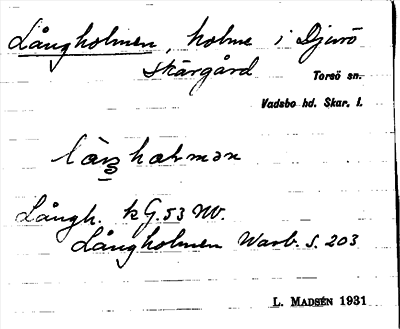 Långholmen, holme i Djurö
skärgård
Torsö sn.
Vadsbo hd. Skar. l.
Långh. kG. 53 NV.
Långholmen Warb. S. 203
L. MADSÉN 1931